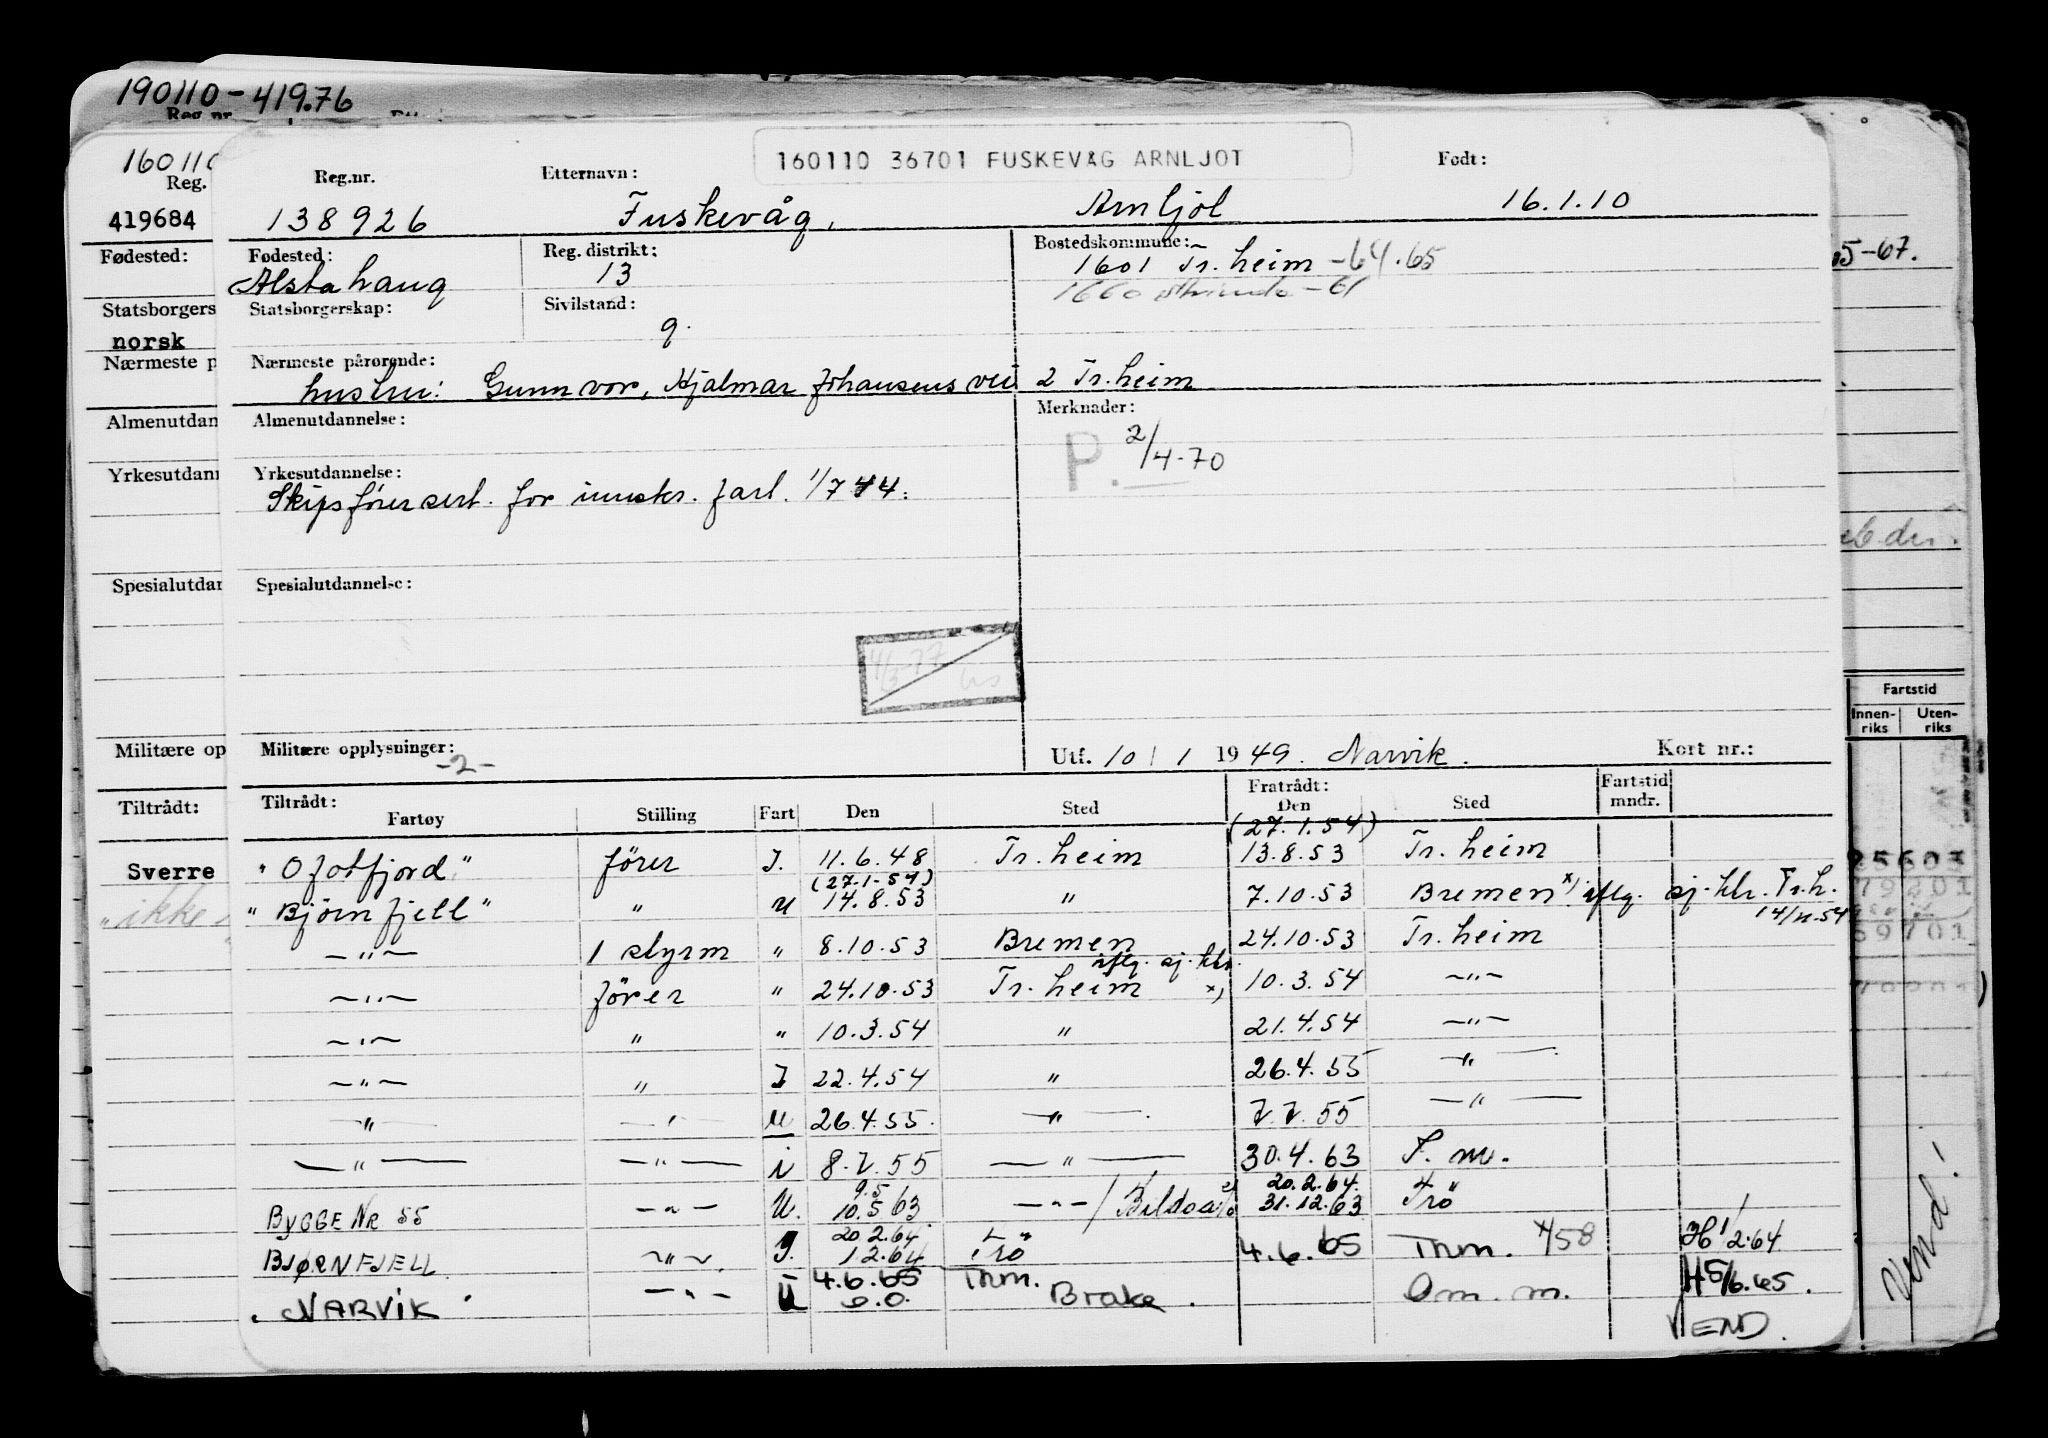 190110-419.76
Reg.nr.
160110
Reg.
419684
Fødested:
Statsborgers
norsk
Nærmeste p
Almenutdan
Yrkesutdann
Spesialutdan
Militære op
Tiltrådt:
Sverre
"ikke
160110 36701 FUSKEVÅG ARNLJOT
Reg.nr. Etternavn: Født:
138926 Fuskevåg, Arnljot 16.1.10
Fødested: Reg. distrikt: Bostedskommune:
Alstahaug 13 1601 Tr.heim -64.65
1660 Strinda -61
Statsborgerskap: Sivilstand:
g.
Nærmeste pårørende:
hustru: Gunnvor, Hjalmar Johansens vei 2 Tr.heim
Almenutdannelse: Merknader:
P. 2/4-70
Yrkesutdannelse:
Skipsförersert. for innskr. fart. 1/7 44.
Spesialutdannelse:
Militære opplysninger: Utf. 10/1 1949. Narvik. Kort nr.:
-2-
Tiltrådt: Fratrådt: Fartstid mndr.
Fartøy Stilling Fart Den Sted Den Sted
(27.1.54)
"Ofotfjord" förer I. 11.6.48 Tr.heim 13.8.53 Tr.heim
(27.1-54)
"Bjørnfjell" " U 14.8.53 " 7.10.53 Bremen x) avlg. sj.kl. Tr.h.
14/11.54
-"- 1 styrm " 8.10.53 Bremen 24.10.53 Tr.heim
avlg. sj.kl.
-"- förer " 24.10.53 Tr.heim x) 10.3.54 -"-
-"- " " 10.3.54 " 21.4.54 -"-
-"- " I 22.4.54 " 26.4.55 -"-
-"- -"- U 26.4.55. -"- 7.7.55 -"-
-"- -"- i 8.7.55 -"- 30.4.63 S.m.
9.5 20.2.64.
BYGGE NR 55 -"- U. 10.5 63 -"- / 31.12.63 Trö
20 2.64
BJØRNFJELL -"- I. 1 2.64 Trö 4.6.65 Thm. x/58 H 1/2.64
4.6.65 Thm.
"NARVIK -"- U o.o. Brake. Om. m. H 5/6.65.
VEND.
5-67.
Fartstid
Innen-riks Uten-riks
25603
79201
69701
Vend!